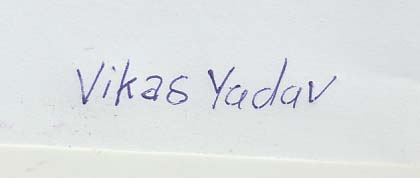 Vikas Yadav